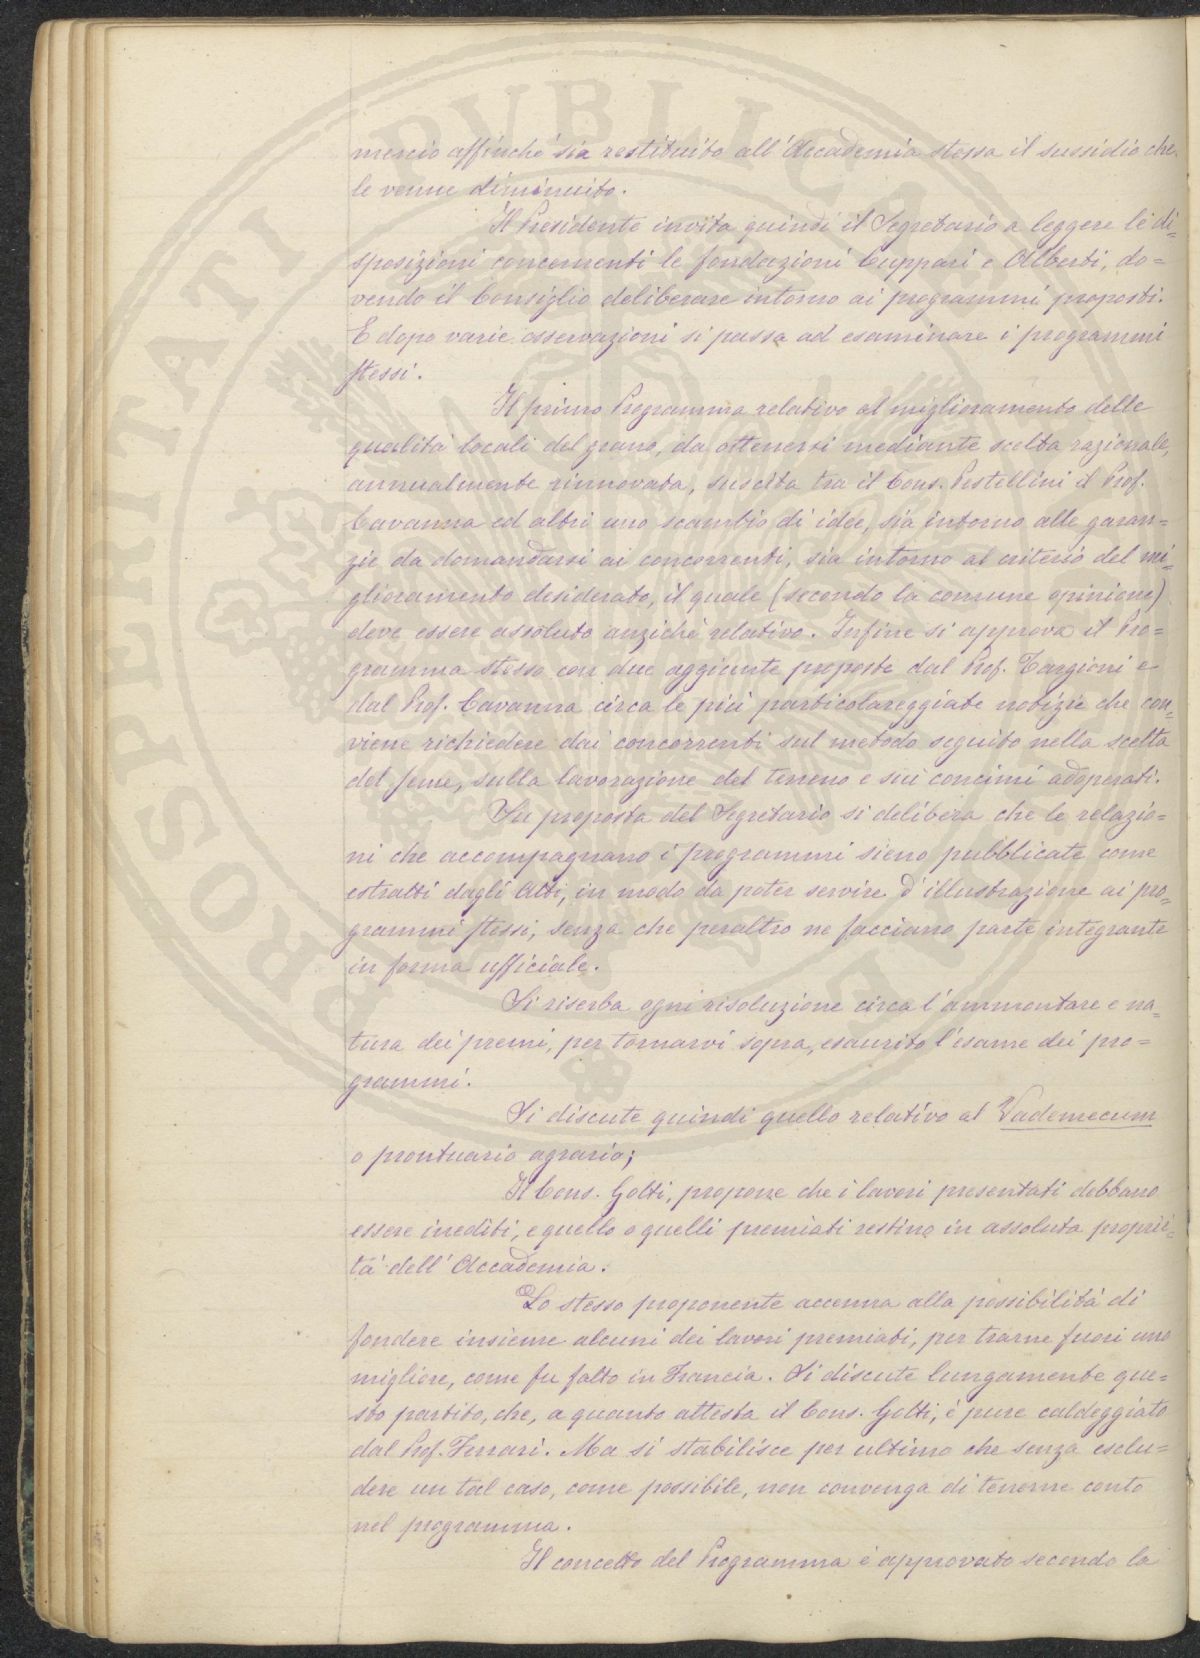 mercio affinché sia restituito all'Accademia stessa il sussidio che
le venne diminuito.
Il Presidente invita quindi il Segretario a leggere le di=
sposizioni concernenti le fondazioni Cuppari e Alberti, do=
vendo il Consiglio deliberare intorno ai programmi proposti.
E dopo varie osservazioni si passa ad esaminare i programmi
stessi.
Il primo Programma relativo al miglioramento delle
qualità locali del grano, da ottenersi mediante scelta razionale,
annualmente rinnovata, suscita tra il Cons. Pestellini il Prof.
Cavanna ed altri uno scambio di idee, sia intorno alle garan=
zie da domandarsi ai concorrenti, sia intorno al criterio del mi=
glioramento desiderato, il quale (secondo la comune opinione)
deve essere assoluto anziché relativo. Infine si approva il Pro=
gramma stesso con due aggiunte proposte dal Prof. Targioni e
dal Prof. Cavanna circa le più particolareggiate notizie che con=
viene richiedere dai concorrenti sul metodo seguito nella scelta
del seme, sulla lavorazione del terreno e sui concimi adoperati.
Su proposta del Segretario si delibera che le relazio=
ni che accompagnano i programmi sieno pubblicate come
estratti dagli Atti, in modo da poter servire d'illustrazione ai pro=
grammi stessi, senza che peraltro ne facciano parte integrante
in forma ufficiale.
Si riserba ogni risoluzione circa l'ammontare e na=
tura dei premi, per tornarvi sopra, esaurito l'esame dei pro=
grammi.
Si discute quindi quello relativo al Vademecum
o prontuario agrario;
Il Cons. Golti, propone che i lavori presentati debbano
essere inediti, e quello o quelli premiati restino in assoluta proprie=
tà dell'Accademia.
Lo stesso proponente accenna alla possibilità di
fondere insieme alcuni dei lavori premiati, per trarne fuori uno
migliore, come fu fatto in Francia. Si discute lungamente que=
sto partito, che, a quanto attesta il Cons. Golti, è pure caldeggiato
dal Prof. Ferrari. Ma si stabilisce per ultimo che senza esclu=
dere un tal caso, come possibile, non convenga di tenerne conto
nel programma.
Il concetto del Programma è approvato secondo la
PROSPERITATI PUBLICAE